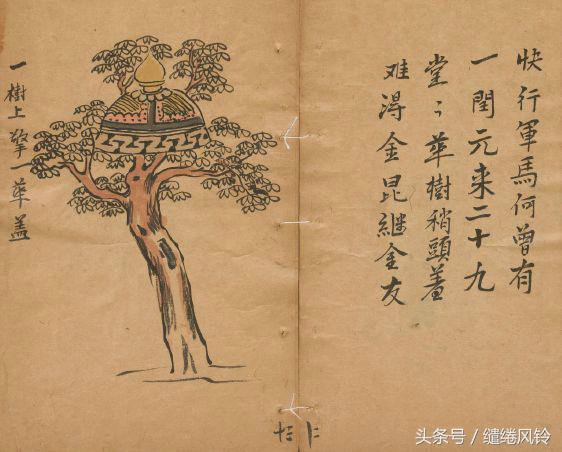 快行軍馬何曾有
一閏元来二十九
堂〻華樹稍頭盖
难淂金昆継金友
一樹上擎一華盖
头条号 / 缱绻风铃